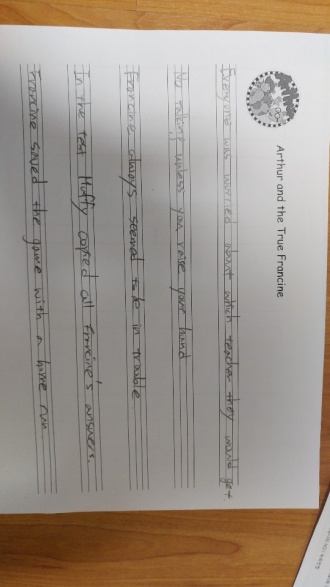 Arthur and the True Francine
Everyone was worried about which teacher they would get
No talking unless you raise your hand
Francine always seemed to be in trouble.
In the test Muffy copied all Francine's answers.
Francine saved the game with a home run.